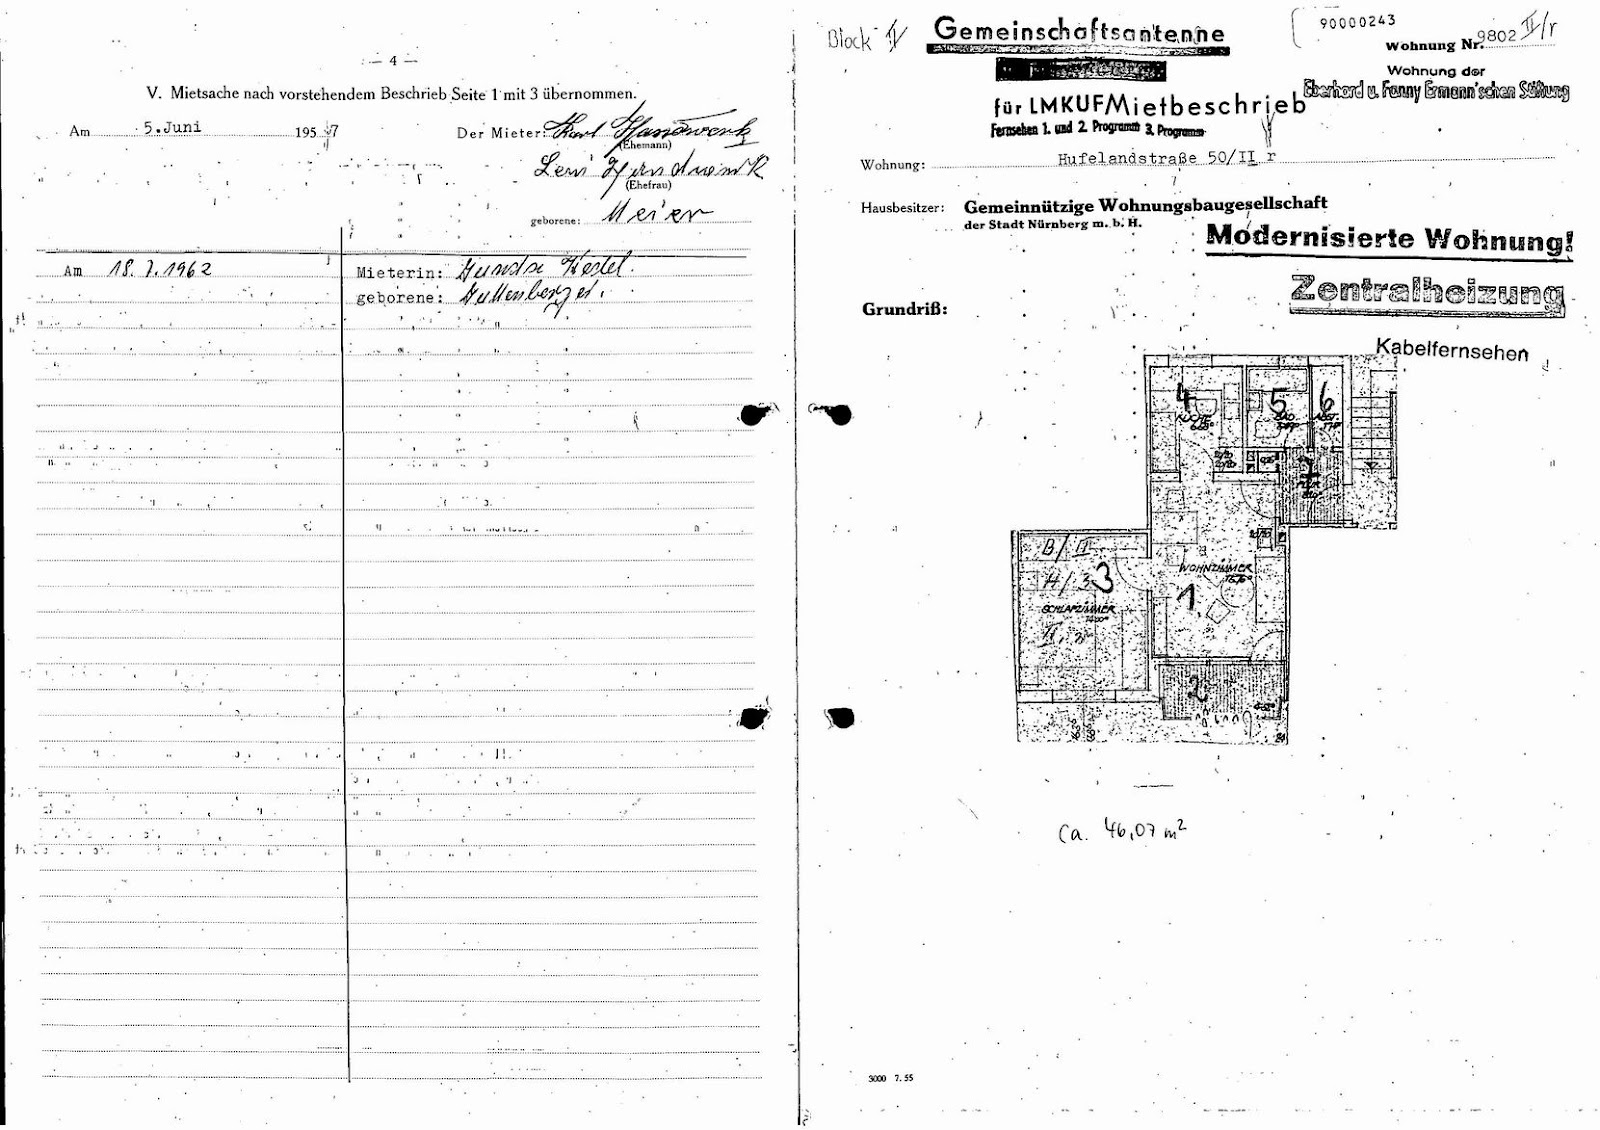 — 4 —
V. Mietsache nach vorstehendem Beschrieb Seite 1 mit 3 übernommen.
Am 5.Juni 1957 Der Mieter: Karl Handwerk
(Ehemann)
Leni Handwerk
(Ehefrau)
geborene: Meier
Am 18.7.1962 Mieterin:
geborene:
Block IV
Gemeinschaftsantenne
für LMKUF Mietbeschrieb
Fernsehen 1. und 2. Programm 3. Programm
90000243
Wohnung Nr. 9802 II/r
Wohnung der
Eberhard u. Fanny Ermann'schen Stiftung
Wohnung: Hufelandstraße 50/II r
Hausbesitzer: Gemeinnützige Wohnungsbaugesellschaft
der Stadt Nürnberg m. b. H.
Modernisierte Wohnung!
Zentralheizung
Grundriß:
Kabelfernsehen
4
KÜCHE
5
BAD
6
ABST.
1
FLUR
B/II
H/3
3
SCHLAFZIMMER
II, 3
WOHNZIMMER
1.
2
ca. 46,07 m²
3000 7.55